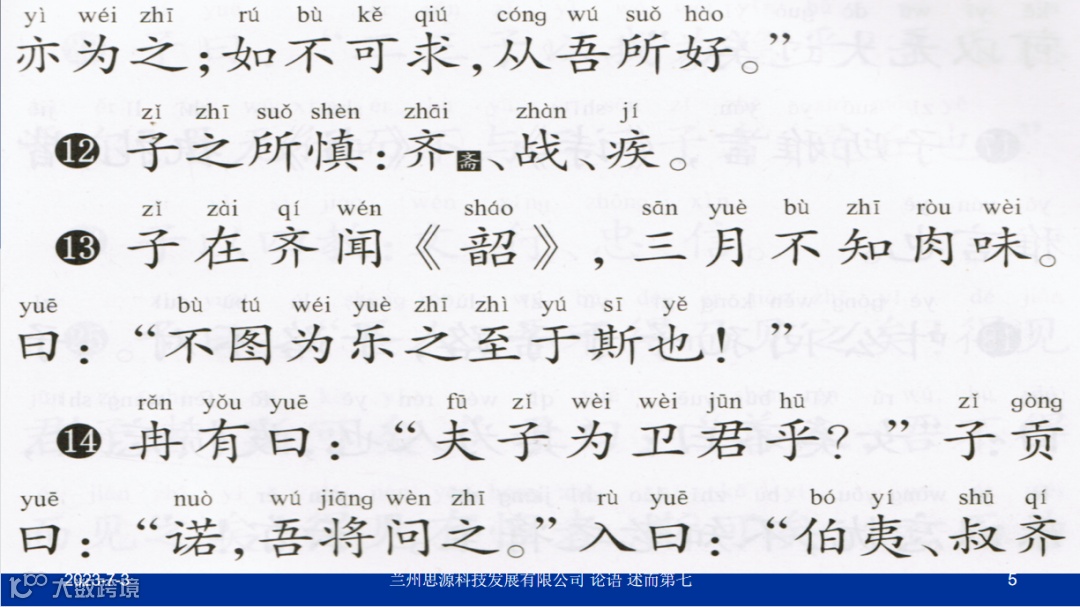 yì wéi zhī rú bù kě qiú cóng wú suǒ hào
亦为之；如不可求，从吾所好。”
zǐ zhī suǒ shèn zhāi zhàn jí
⓬ 子之所慎：齐斋、战、疾。
zǐ zài qí wén sháo sān yuè bù zhī ròu wèi
⓭ 子在齐闻《韶》，三月不知肉味。
yuē bù tú wéi yuè zhī zhì yú sī yě
曰：“不图为乐之至于斯也！”
rǎn yǒu yuē fū zǐ wèi wèi jūn hū zǐ gòng
⓮ 冉有曰：“夫子为卫君乎？”子贡
yuē nuò wú jiāng wèn zhī rù yuē bó yí shū qí
曰：“诺，吾将问之。”入曰：“伯夷、叔齐
2023-7-3 兰州思源科技发展有限公司 论语 述而第七 5
大数跨境